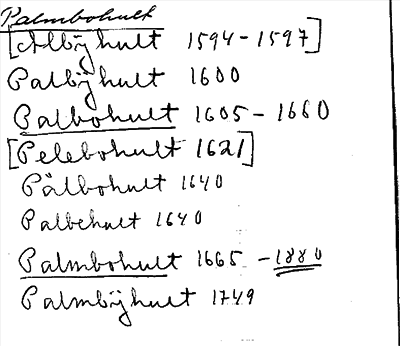 Palmbohult
[Albÿhult 1594-1597]
Palbÿhult 1600
Palbohult 1605-1660
[Pelebohult 1621]
Pålbohult 1640
Palbehult 1640
Palmbohult 1665-1880
Palmbÿhult 1749